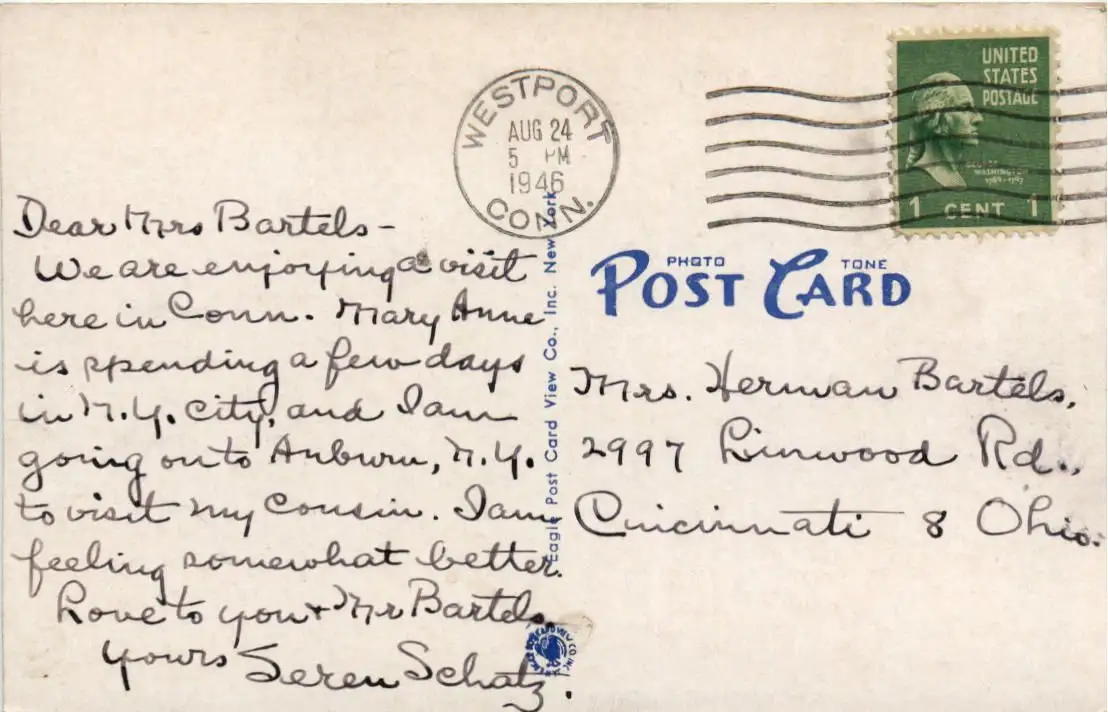 WESTPORT
AUG 24
5 PM
1946
CONN.
UNITED
STATES
POSTAGE
GEORGE
WASHINGTON
1789-1797
1 CENT 1
PHOTO TONE
POST CARD
Dear Mrs Bartels -
We are enjoying a visit
here in Conn. Mary Anne
is spending a few days
in N.Y. City, and I am
going on to Auburn, N.Y.
to visit my cousin. I am
feeling somewhat better.
Love to you & Mr Bartels.
Yours Seren Schatz.
Eagle Post Card View Co., Inc. New York
Mrs. Herman Bartels,
2997 Linwood Rd.,
Cincinnati 8 Ohio.